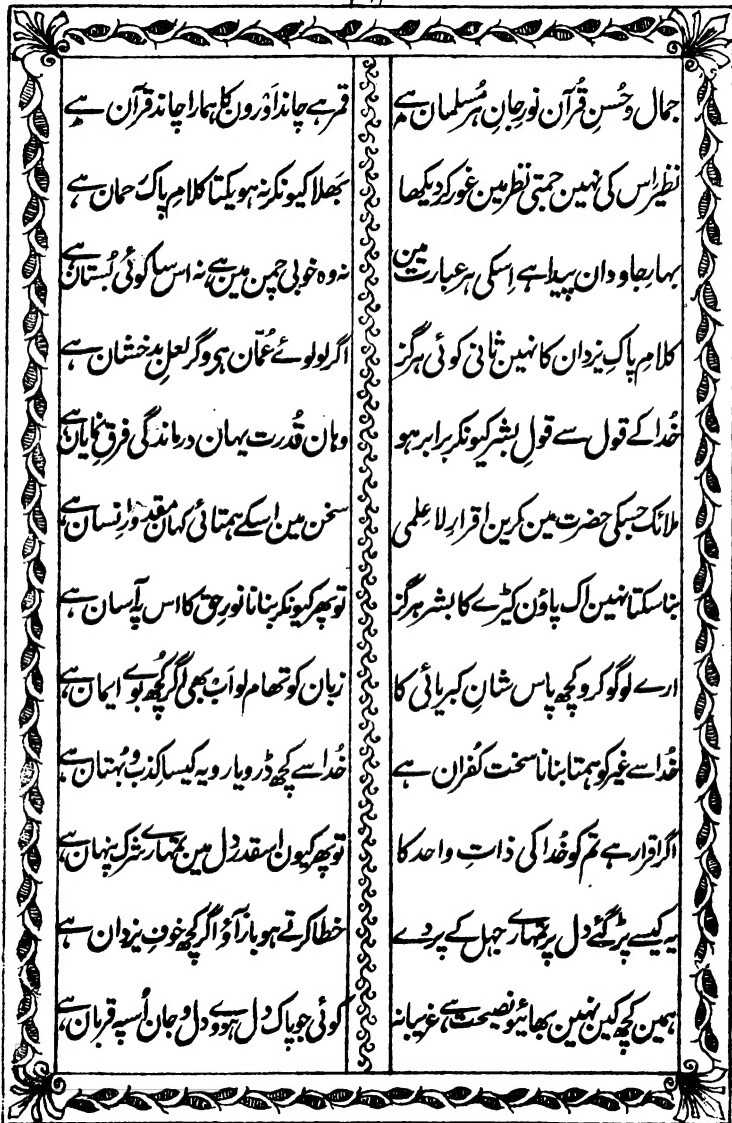 جمال و حُسنِ قُرآن نورِ جانِ ہر مُسلمان ہے
قمر ہے چاند اَوْرون کا ہمارا چاند قرآن ہے
نظیر اس کی نہین جمتی نظر مین غور کر دیکھا
بَھلا کیونکر نہ ہو یکتا کلامِ پاک رحمان ہے
بہارِ جاودان پیدا ہے اِسکی ہر عبارت مین
نہ وہ خوبی چمن مین ہے نہ اس سا کوئی بُستان ہے
کلامِ پاکِ یزدان کا نہین ثانی کوئی ہرگز
اگر لولوئے عُمّان ہی وگر لعلِ بدخشان ہے
خُدا کے قول سے قولِ بشر کیونکر برابر ہو
وہان قُدرت یہان درماندگی فرقِ نمایان ہے
ملائک جسکی حضرت مین کرین اقرارِ لا علمی
سخن مین اسکے ہمتائی کہان مقدورِ اِنسان ہے
بنا سکتا نہین اک پاؤن کیڑے کا بشر ہرگز
تو پھر کیونکر بنانا نورِ حق کا اس پہ آسان ہے
ارے لوگو کرو کچھ پاس شانِ کبریائی کا
زبان کو تھام لو اَب بھی اگر کُچھ بوئے ایمان ہے
خُدا سے غیر کو ہمتا بنانا سخت کُفران ہے
خُدا سے کچھ ڈرو یارو یہ کیسا کذب و بُہتان ہے
اگر اقرار ہے تم کو خُدا کی ذاتِ واحد کا
تو پھر کیون اسقدر دل مین تمہارے شرک پنہان ہے
یہ کیسے پڑ گئے دل پر تمہارے جہل کے پردے
خطا کرتے ہو باز آؤ اگر کچھ خوفِ یزدان ہے
ہمین کچھ کین نہین بھائیو نصیحت ہے غریبانہ
کوئی جو پاک دل ہووے دل و جان اُسپہ قربان ہے